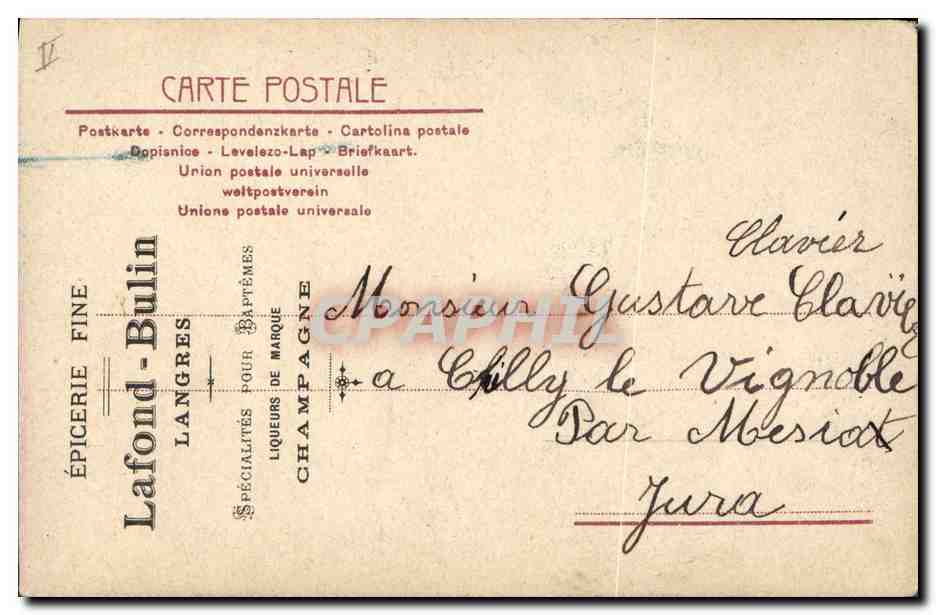 V
CARTE POSTALE
Postkarte - Correspondenzkarte - Cartolina postale
Dopisnice - Levelezo-Lap - Briefkaart.
Union postale universelle
weltpostverein
Unione postale universale
ÉPICERIE FINE
Lafond-Bulin
LANGRES
SPÉCIALITÉS POUR BAPTÊMES
LIQUEURS DE MARQUE
CHAMPAGNE
Clavier
Monsieur Gustave Clavier
a Chilly le Vignoble
Par Mesia
Jura
CPAPHIL